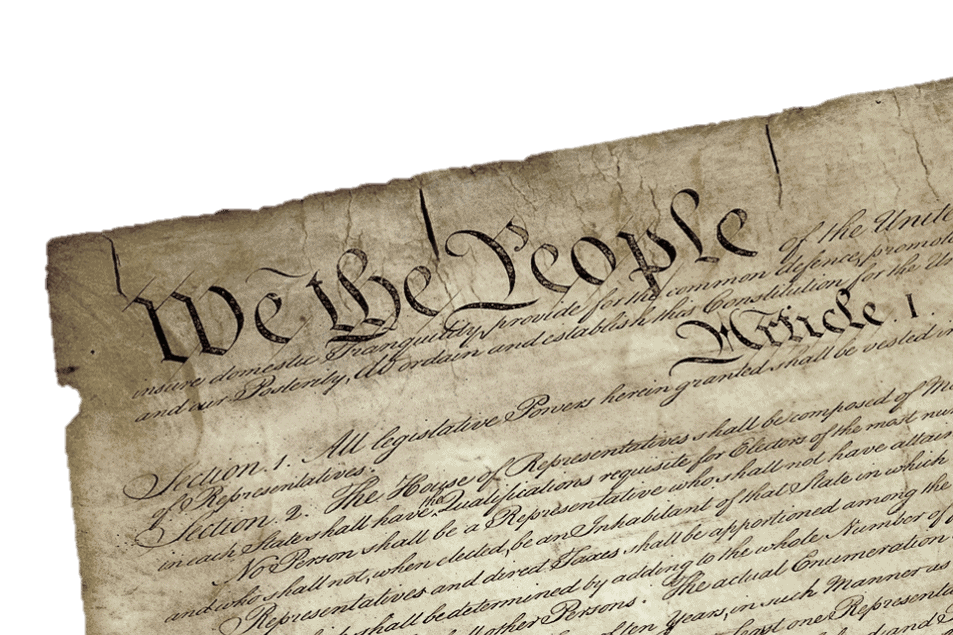 We the People of the Unite
insure domestic Tranquility, provide for the common defence, promote
and our Posterity, do ordain and establish this Constitution for the Un
Article I.
Section. 1. All legislative Powers herein granted shall be vested in
of Representatives.
Section. 2. The House of Representatives shall be composed of Me
in each State shall have the Qualifications requisite for Electors of the most num
No Person shall be a Representative who shall not have attain
and who shall not, when elected, be an Inhabitant of that State in which
Representatives and direct Taxes shall be apportioned among the
shall be determined by adding to the whole Number of
all other Persons. The actual Enumeration
of ten Years, in such Manner as
least one Representa